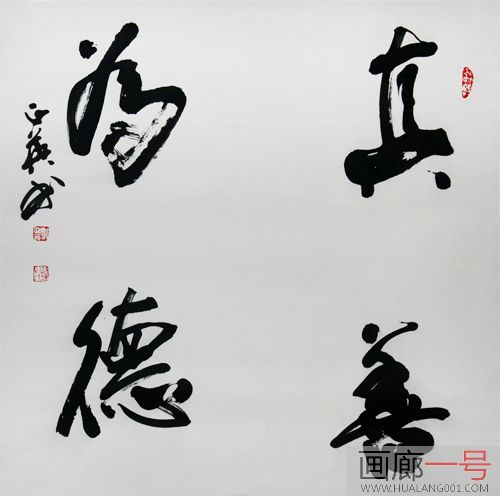 真善
為德
画廊一号
WWW.HUALANG001.COM